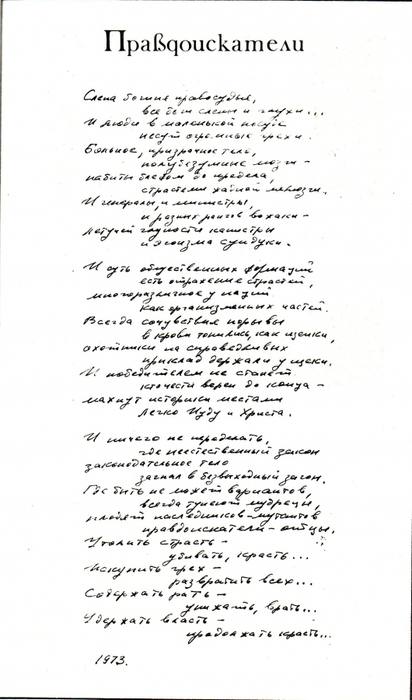 Правдоискатели
Слепа богиня правосудья,
все боги слепы и глухи...
И люди в маленькой посуде
несут огромные грехи.
Больное, призрачное тело,
полубезумные мозги -
набиты бредом до предела,
страстями жадной мелюзги.
И генералы, и министры,
и разных рангов вожаки -
летучей глупости канистры
и эгоизма сундуки.
И суть общественных формаций
есть отражение страстей,
многоразличное у наций
как организменных частей.
Всегда сочувствия порывы
в крови топились, как щенки,
охотники на справедливых
приклад держали у щеки.
И победителем не станет
кто чести верен до конца -
махнут историки местами
легко Иуду и Христа.
И ничего не переделать,
где неестественный закон
законодательное тело
загнал в безвыходный загон.
Где быть не может вариантов,
всегда тупеют мудрецы,
плодят наследников-мутантов
правдоискатели-отцы.
Утолить страсть -
убивать, красть...
Искупить грех -
развратить всех...
Содержать рать -
унижать, врать...
Удержать власть -
продолжать красть...
1973.